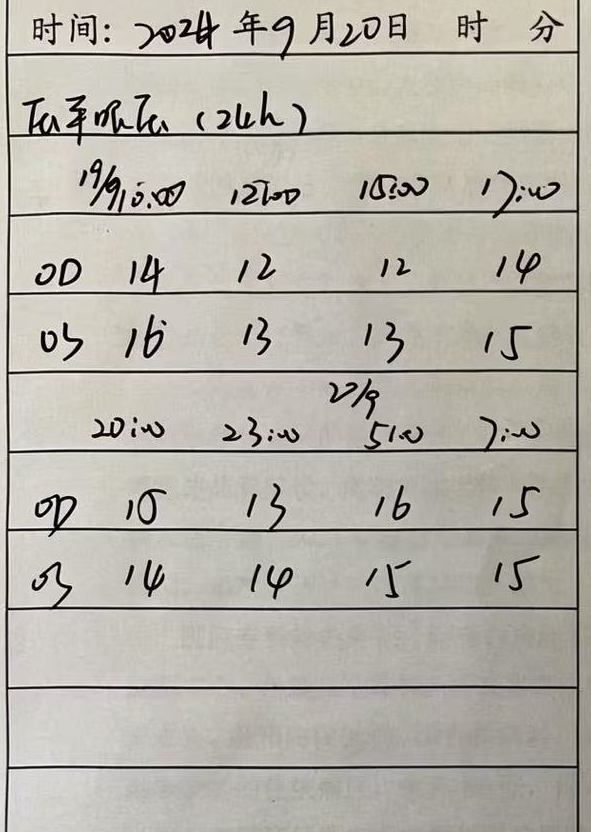 时间: 2024年9月20日 时 分
压平眼压（24h）
19/9 10:00 12:00 15:00 17:00
OD 14 12 12 14
OS 16 13 13 15
20/9
20:00 23:00 5:00 7:00
OD 15 13 16 15
OS 14 14 15 15